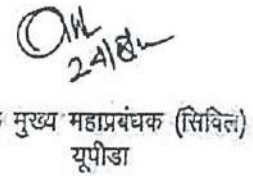 24/8
मुख्य महाप्रबंधक (सिविल)
यूपीडा